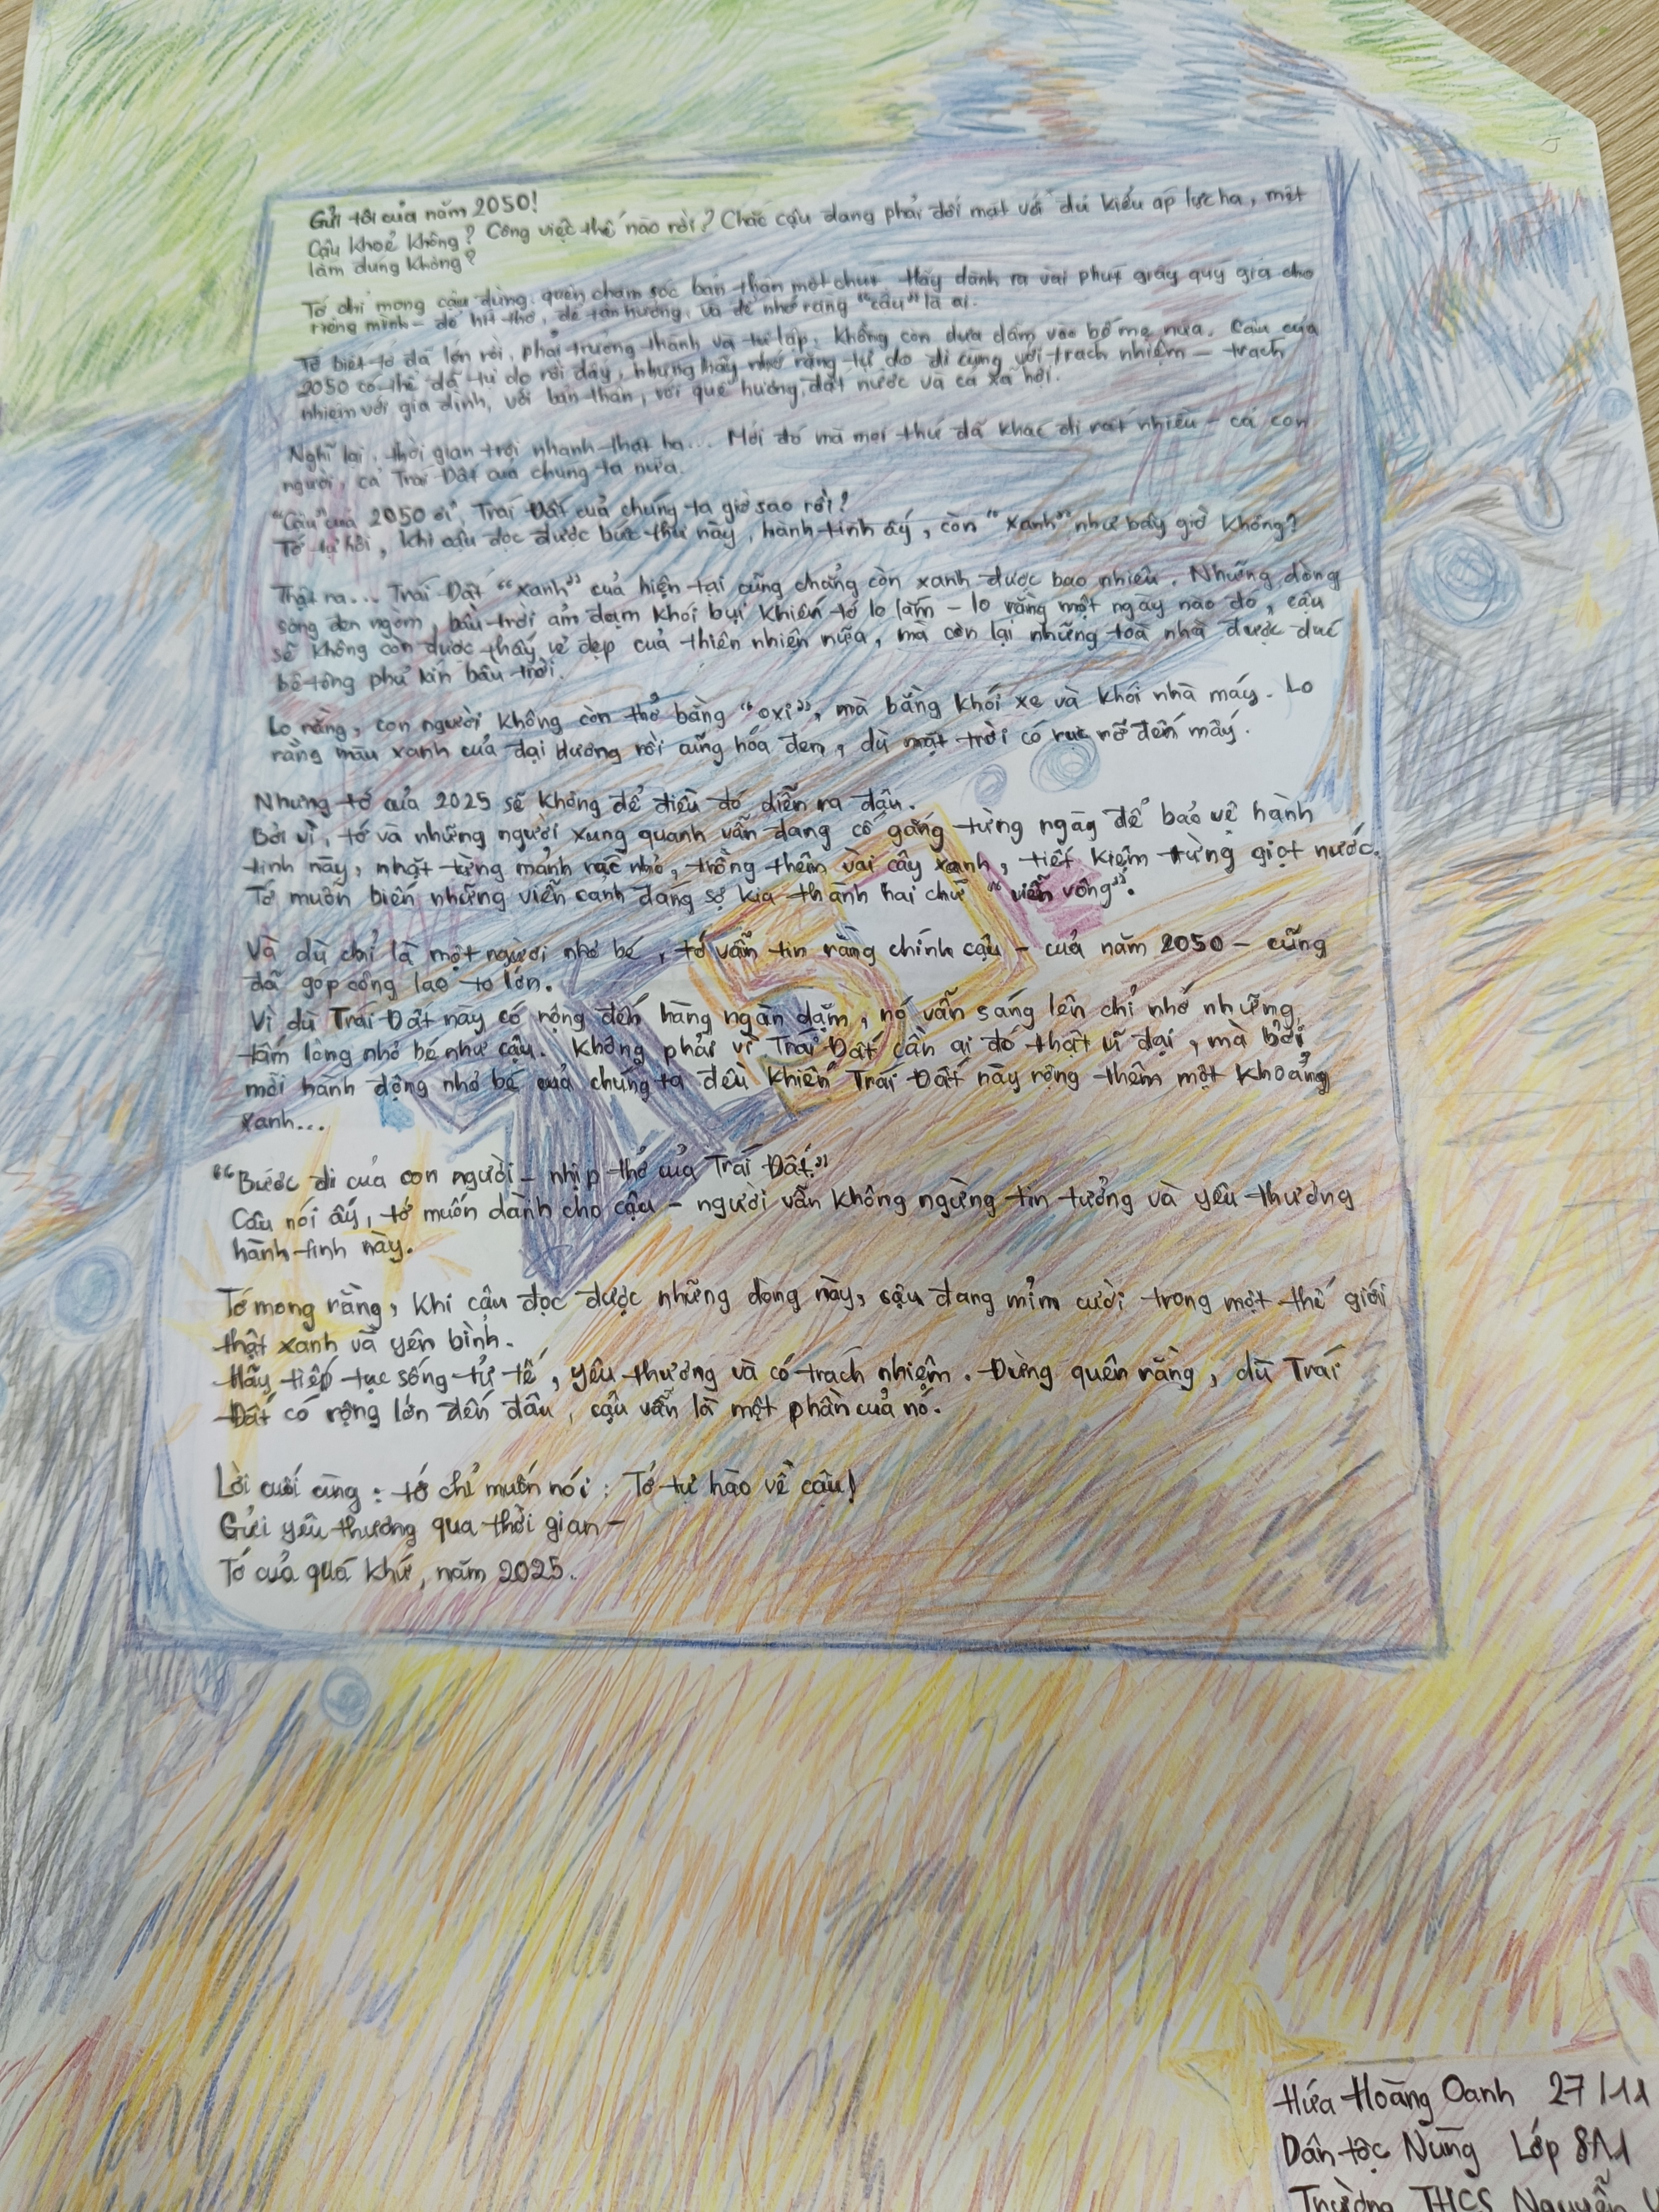 Gửi tôi của năm 2050!
Cậu khoẻ không? Công việc thế nào rồi? Chắc cậu đang phải đối mặt với đủ kiểu áp lực ha, mệt
lắm đúng không?
Tớ chỉ mong cậu đừng quên chăm sóc bản thân một chút. Hãy dành ra vài phút giây quý giá cho
riêng mình – để hít thở, để tận hưởng, và để nhớ rằng "cậu" là ai.
Tớ biết tớ đã lớn rồi, phải trưởng thành và tự lập, không còn dựa dẫm vào bố mẹ nữa. Cậu của
2050 có thể đã tự do rồi đấy, nhưng hãy nhớ rằng tự do đi cùng với trách nhiệm – trách
nhiệm với gia đình, với bản thân, với quê hương, đất nước và cả xã hội.
Nghĩ lại, thời gian trôi nhanh thật ha... Mới đó mà mọi thứ đã khác đi rất nhiều – cả con
người, cả Trái Đất của chúng ta nữa.
"Cậu" của 2050 ơi, Trái Đất của chúng ta giờ sao rồi?
Tớ tự hỏi, khi cậu đọc được bức thư này, hành tinh ấy, còn "xanh" như bây giờ không?
Thật ra... Trái Đất "xanh" của hiện tại cũng chẳng còn xanh được bao nhiêu. Những dòng
sông đen ngòm, bầu trời ảm đạm khói bụi khiến tớ lo lắm – lo rằng một ngày nào đó, cậu
sẽ không còn được thấy vẻ đẹp của thiên nhiên nữa, mà còn lại những toà nhà được đúc
bê-tông phủ kín bầu trời.
Lo rằng, con người không còn thở bằng "oxi", mà bằng khói xe và khói nhà máy. Lo
rằng màu xanh của đại dương rồi cũng hóa đen, dù mặt trời có rực rỡ đến mấy.
Nhưng tớ của 2025 sẽ không để điều đó diễn ra đâu.
Bởi vì, tớ và những người xung quanh vẫn đang cố gắng từng ngày để bảo vệ hành
tinh này, nhặt từng mảnh rác nhỏ, trồng thêm vài cây xanh, tiết kiệm từng giọt nước.
Tớ muốn biến những viễn cảnh đáng sợ kia thành hai chữ "viển vông".
Và dù chỉ là một người nhỏ bé, tớ vẫn tin rằng chính cậu – của năm 2050 – cũng
đã góp công lao to lớn.
Vì dù Trái Đất này có rộng đến hàng ngàn dặm, nó vẫn sáng lên chỉ nhờ những
tấm lòng nhỏ bé như cậu. Không phải vì Trái Đất cần ai đó thật vĩ đại, mà bởi
mỗi hành động nhỏ bé của chúng ta đều khiến Trái Đất này rộng thêm một khoảng
xanh...
"Bước đi của con người – nhịp thở của Trái Đất."
Câu nói ấy, tớ muốn dành cho cậu – người vẫn không ngừng tin tưởng và yêu thương
hành tinh này.
Tớ mong rằng, khi cậu đọc được những dòng này, cậu đang mỉm cười trong một thế giới
thật xanh và yên bình.
Hãy tiếp tục sống tử tế, yêu thương và có trách nhiệm. Đừng quên rằng, dù Trái
Đất có rộng lớn đến đâu, cậu vẫn là một phần của nó.
Lời cuối cùng: tớ chỉ muốn nói: Tớ tự hào về cậu!
Gửi yêu thương qua thời gian –
Tớ của quá khứ, năm 2025.
Hứa Hoàng Oanh 27/11
Dân tộc Nùng Lớp 8A1
Trường THCS Nguyễn